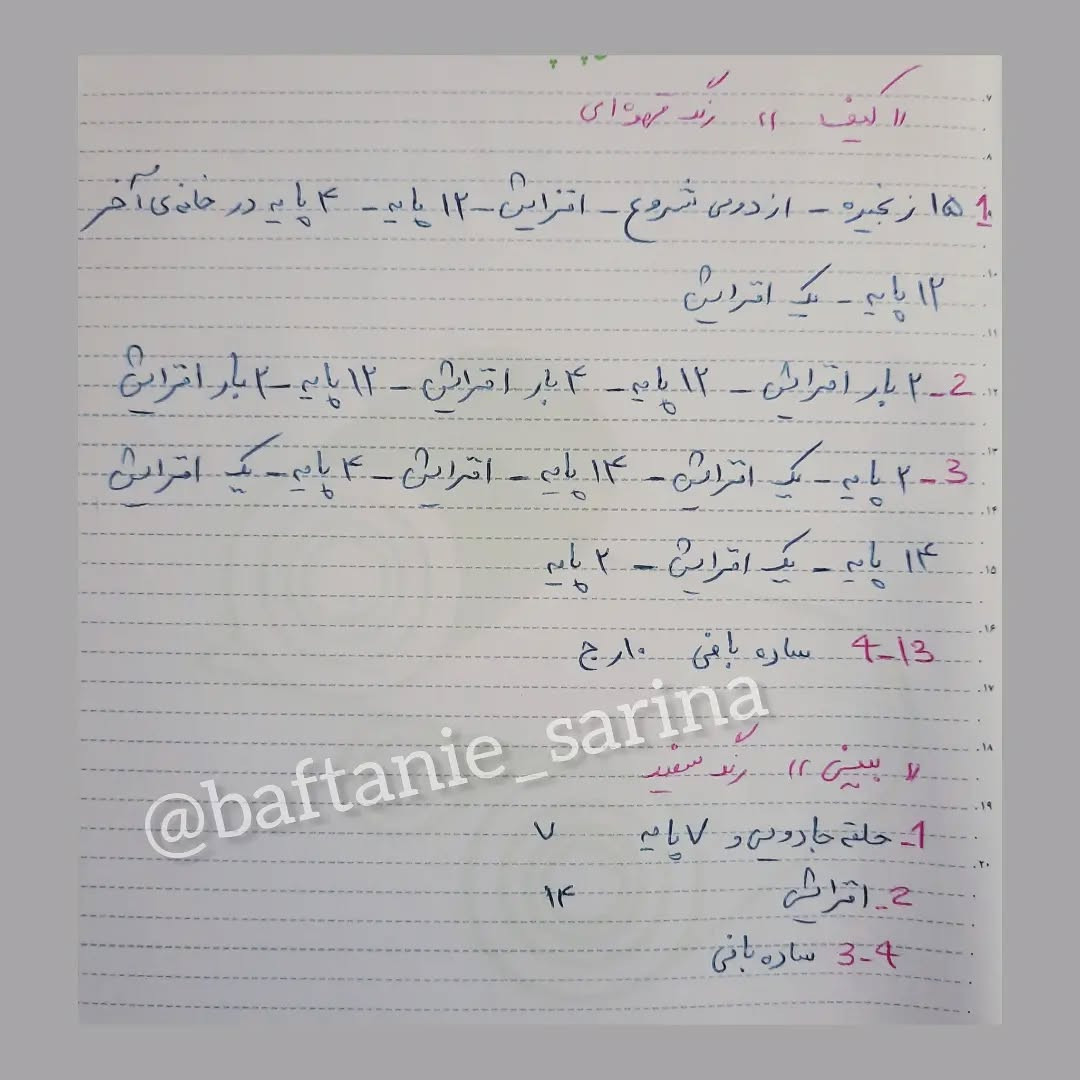 "کیف" رنگ قهوه‌ای
1 ۱۵ زنجیره - از دومی شروع - افزایش - ۱۲ پایه - ۴ پایه در خانه‌ی آخر
۱۲ پایه - یک افزایش
2- ۲ بار افزایش - ۱۲ پایه - ۴ بار افزایش - ۱۲ پایه - ۲ بار افزایش
3- ۲ پایه - یک افزایش - ۱۴ پایه - افزایش - ۴ پایه - یک افزایش
۱۴ پایه - یک افزایش - ۲ پایه
4-13 ساده بافی ۱۰ رج
@baftanie_sarina
"بینی" رنگ سفید
1- حلقه جادویی و ۷ پایه ۷
2- افزایش ۱۴
3-4 ساده بافی
۷
۸
۱۰
۱۱
۱۲
۱۳
۱۴
۱۵
۱۶
۱۷
۱۸
۱۹
۲۰